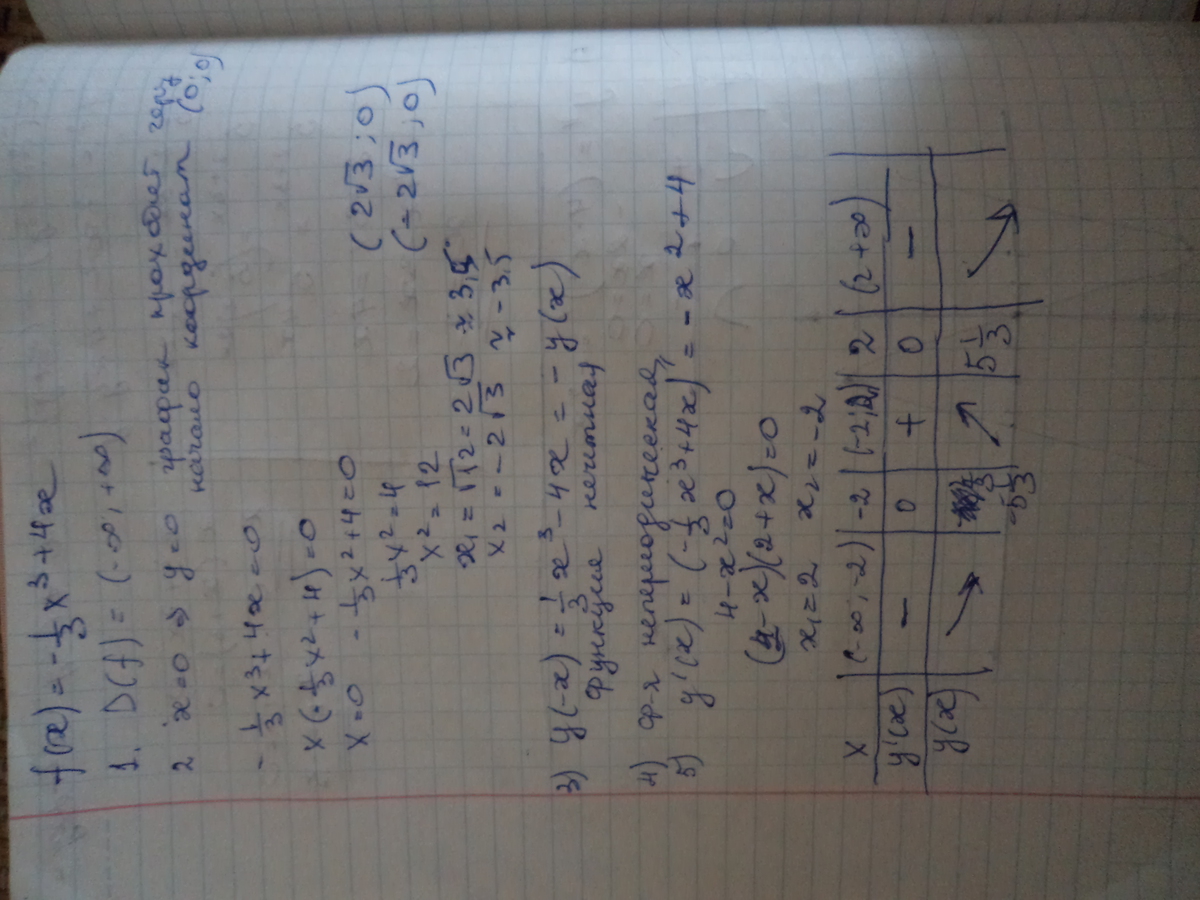 f(x) = -1/3 x³ + 4x
1. D(f) = (-∞, +∞)
2 x=0 ⇒ y=0 график проходит через
начало координат (0;0)
-1/3 x³ + 4x = 0
x(-1/3 x² + 4) = 0
x=0 -1/3 x² + 4 = 0
1/3 x² = 4
x² = 12
x₁ = √12 = 2√3 ≈ 3,5 (2√3 ; 0)
x₂ = -2√3 ≈ -3,5 (-2√3 ; 0)
3) y(-x) = 1/3 x³ - 4x = - y(x)
функция нечитная
4) ф-я непериодическая
5) y'(x) = (-1/3 x³ + 4x)' = - x² + 4
4 - x² = 0
(2 - x)(2 + x) = 0
x₁ = 2 x₂ = -2
x (-∞; -2) -2 (-2; 2) 2 (2 +∞)
y'(x) - 0 + 0 -
y(x) ↘ -5 1/3 ↗ 5 1/3 ↘